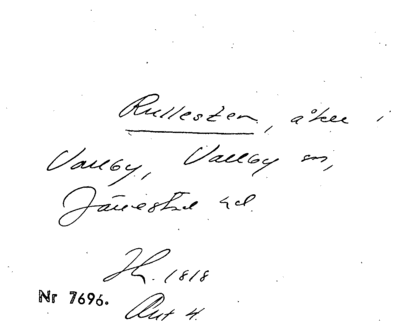 Rullesten, åker i
Vallby, Vallby sn,
Järrestad hd.
Hk. 1818
Nr 7696.
Akt 4.